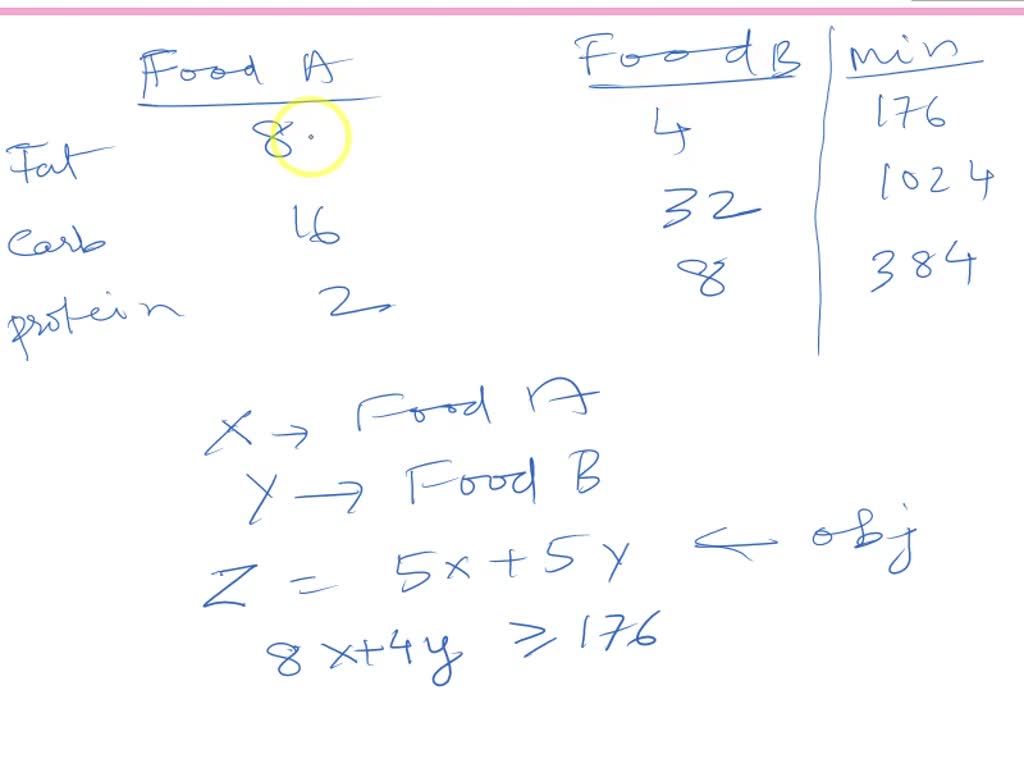 Food A Food B min
Fat 8 4 176
Carb 16 32 1024
protein 2 8 384
X → Food A
Y → Food B
Z = 5x + 5y ← obj
8x+4y ≥ 176